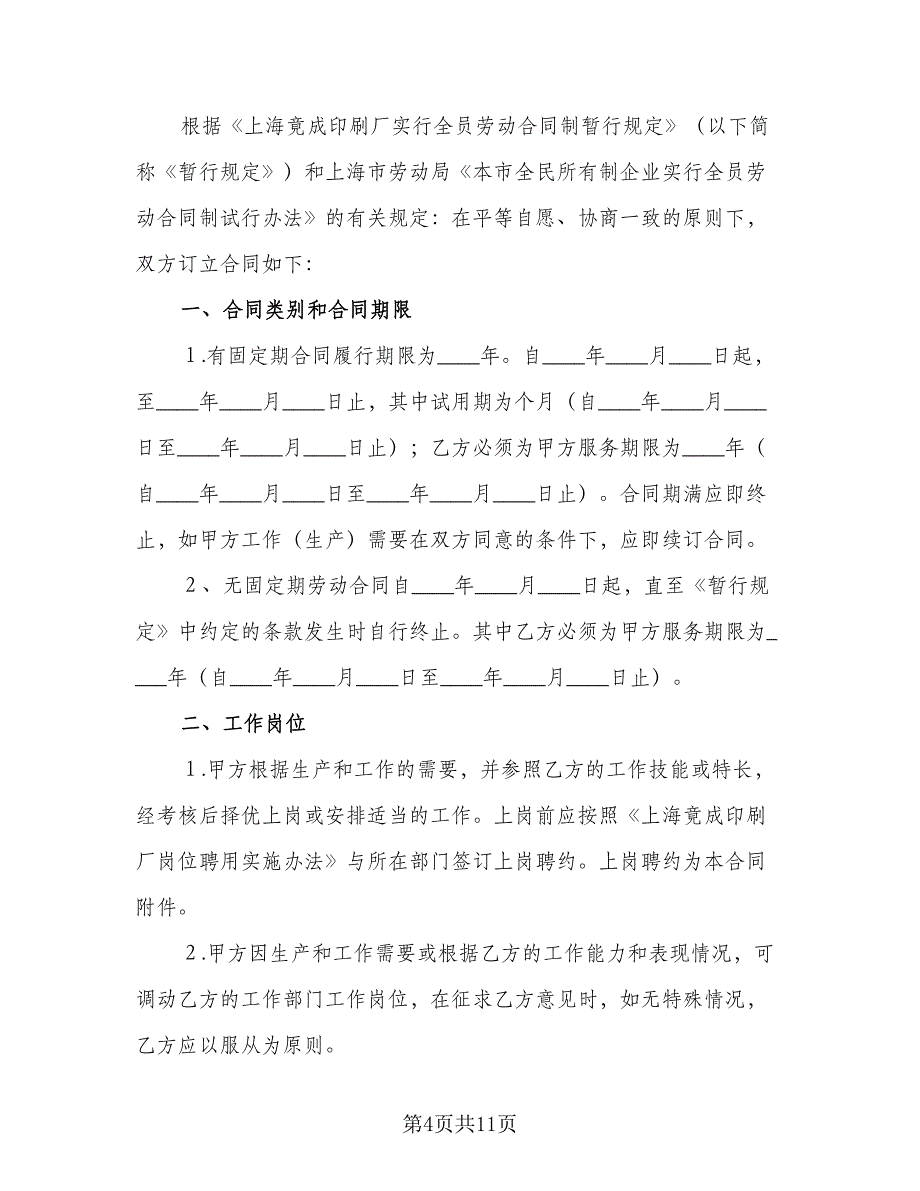 根据《上海竟成印刷厂实行全员劳动合同制暂行规定》（以下简
称《暂行规定》）和上海市劳动局《本市全民所有制企业实行全员劳
动合同制试行办法》的有关规定：在平等自愿、协商一致的原则下，
双方订立合同如下：
一、合同类别和合同期限
1.有固定期合同履行期限为____年。自____年____月____日起，
至____年____月____日止，其中试用期为个月（自____年____月____
日至____年____月____日止）；乙方必须为甲方服务期限为____年（
自____年____月____日至____年____月____日止）。合同期满应即终
止，如甲方工作（生产）需要在双方同意的条件下，应即续订合同。
2、无固定期劳动合同自____年____月____日起，直至《暂行规
定》中约定的条款发生时自行终止。其中乙方必须为甲方服务期限为_
___年（自____年____月____日至____年____月____日止）。
二、工作岗位
1.甲方根据生产和工作的需要，并参照乙方的工作技能或特长，
经考核后择优上岗或安排适当的工作。上岗前应按照《上海竟成印刷
厂岗位聘用实施办法》与所在部门签订上岗聘约。上岗聘约为本合同
附件。
2.甲方因生产和工作需要或根据乙方的工作能力和表现情况，可
调动乙方的工作部门工作岗位，在征求乙方意见时，如无特殊情况，
乙方应以服从为原则。
第4页共11页